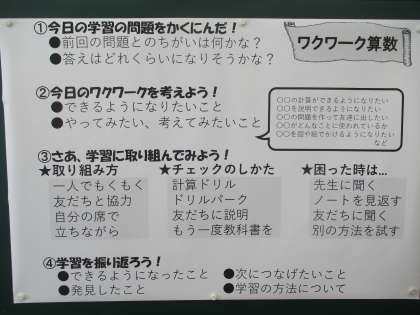 ワクワーク算数
①今日の学習の問題をかくにんだ！
●前回の問題とのちがいは何かな？
●答えはどれくらいになりそうかな？
②今日のワクワークを考えよう！
●できるようになりたいこと
●やってみたい、考えてみたいこと
○○の計算ができるようになりたい
○○を説明できるようになりたい
○○の問題を作って友達に出したい
○○がどんなことに使われているか
○○を図や絵でかけるようになりたい
など
③さあ、学習に取り組んでみよう！
★取り組み方
一人でもくもく
友だちと協力
自分の席で
立ちながら
★チェックのしかた
計算ドリル
ドリルパーク
友だちに説明
もう一度教科書を
★困った時は…
先生に聞く
ノートを見返す
友だちに聞く
別の方法を試す
④学習を振り返ろう！
●できるようになったこと
●発見したこと
●次につなげたいこと
●学習の方法について